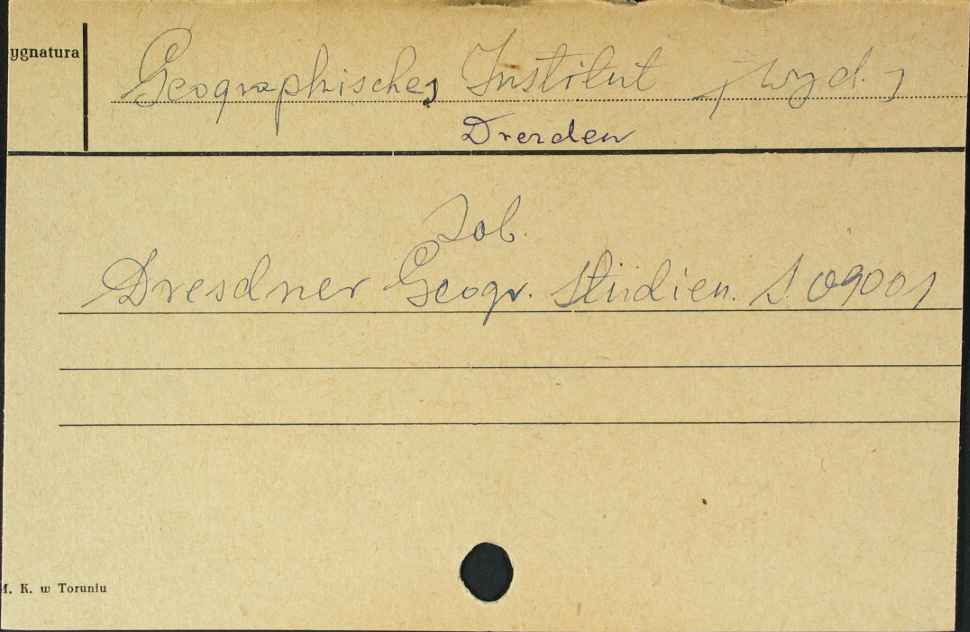 ygnatura
Geographisches Institut /wyd./
Dresden
Zob.
Dresdner Geogr. Studien. S. 09001
M. K. w Toruniu